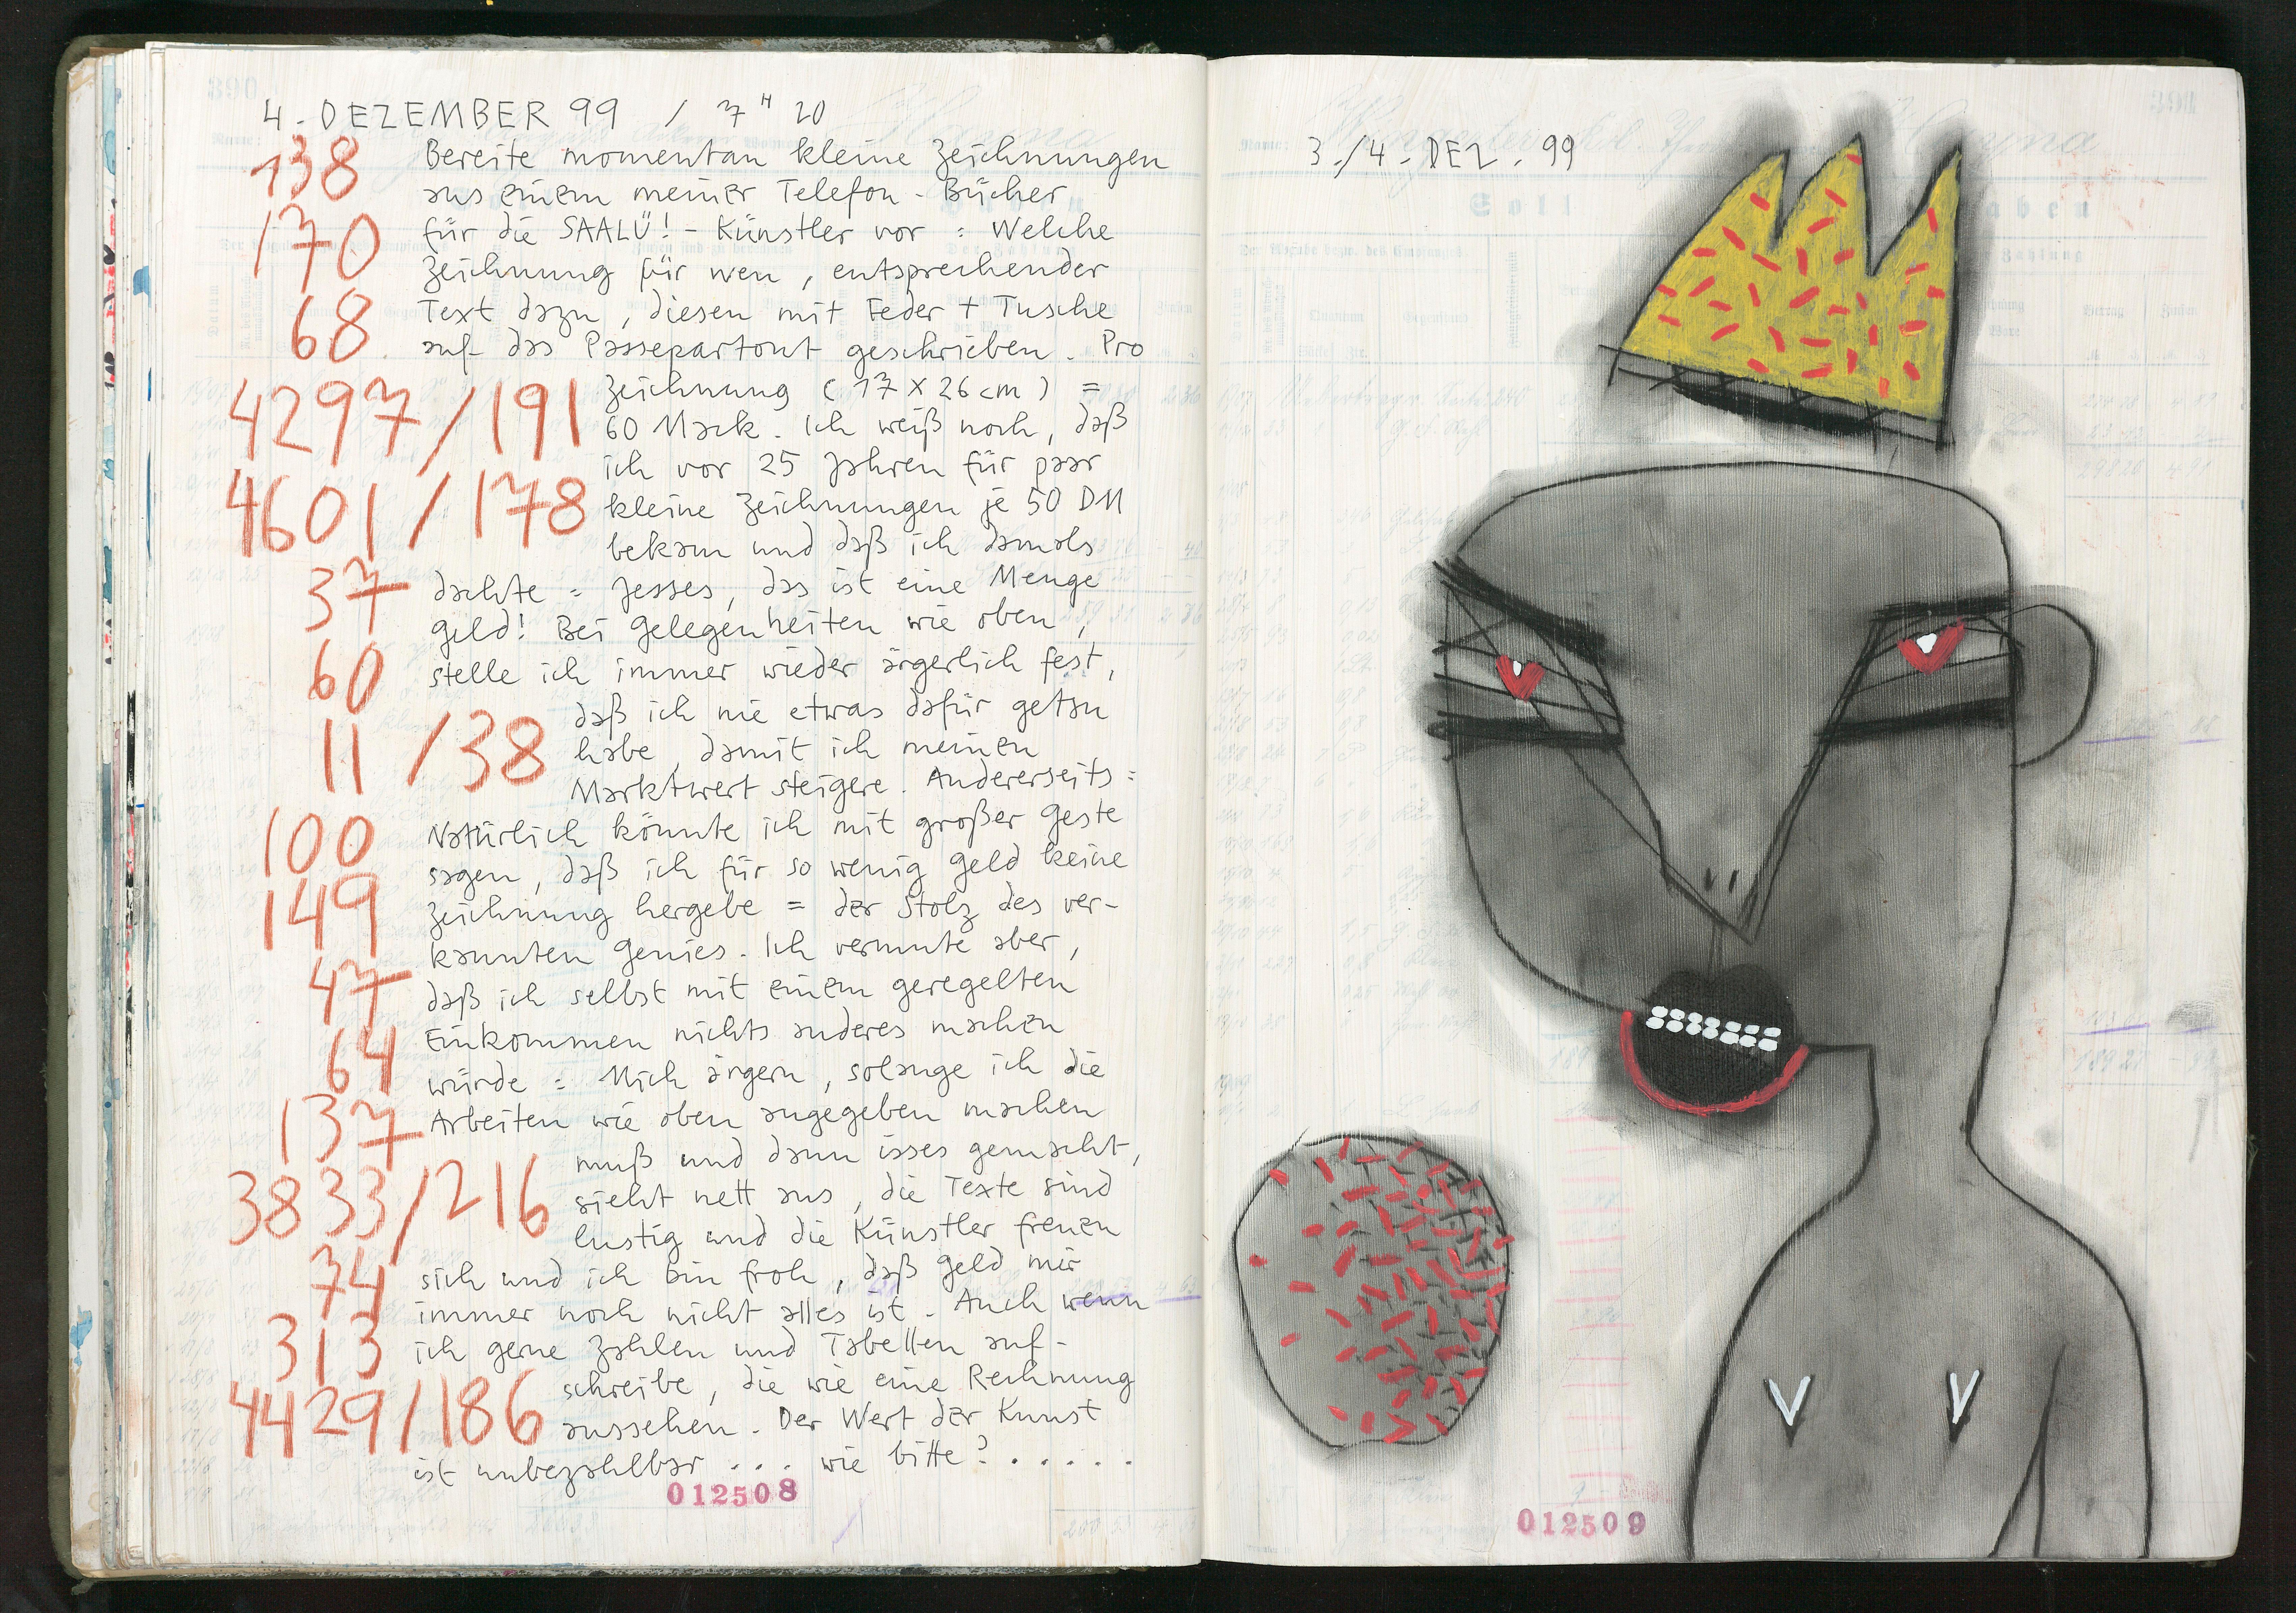 4. DEZEMBER 99 / 7 H 20
138
Bereite momentan kleine Zeichnungen
aus einem meiner Telefon-Bücher
170
für die SAALÜ!-Künstler vor : Welche
Zeichnung für wen, entsprechender
68
Text dazu, diesen mit Feder + Tusche
auf das Passepartout geschrieben. Pro
4297/191
Zeichnung (17 x 26 cm) =
60 Mark. Ich weiß noch, daß
ich vor 25 Jahren für paar
4601/178
kleine Zeichnungen je 50 DM
bekam und daß ich damals
37
dachte = Jesses, das ist eine Menge
Geld! Bei Gelegenheiten wie oben,
60
stelle ich immer wieder ärgerlich fest,
daß ich nie etwas dafür getan
11/38
habe, damit ich meinen
Marktwert steigere. Andererseits :
100
Natürlich könnte ich mit großer Geste
sagen, daß ich für so wenig Geld keine
149
Zeichnung hergebe = der Stolz des ver-
kannten Genies. Ich vermute aber,
47
daß ich selbst mit einem geregelten
Einkommen nichts anderes machen
64
würde = Mich ärgern, solange ich die
137
Arbeiten wie oben angegeben machen
muß und dann isses gemacht,
3833/216
sieht nett aus, die Texte sind
lustig und die Künstler freuen
74
sich und ich bin froh, daß Geld mir
immer noch nicht alles ist. Auch wenn
313
ich gerne Zahlen und Tabellen auf-
schreibe, die wie eine Rechnung
4429/186
aussehen. Der Wert der Kunst
ist unbezahlbar ... wie bitte? ......
012508
3./4. DEZ. 99
Soll
Haben
012509